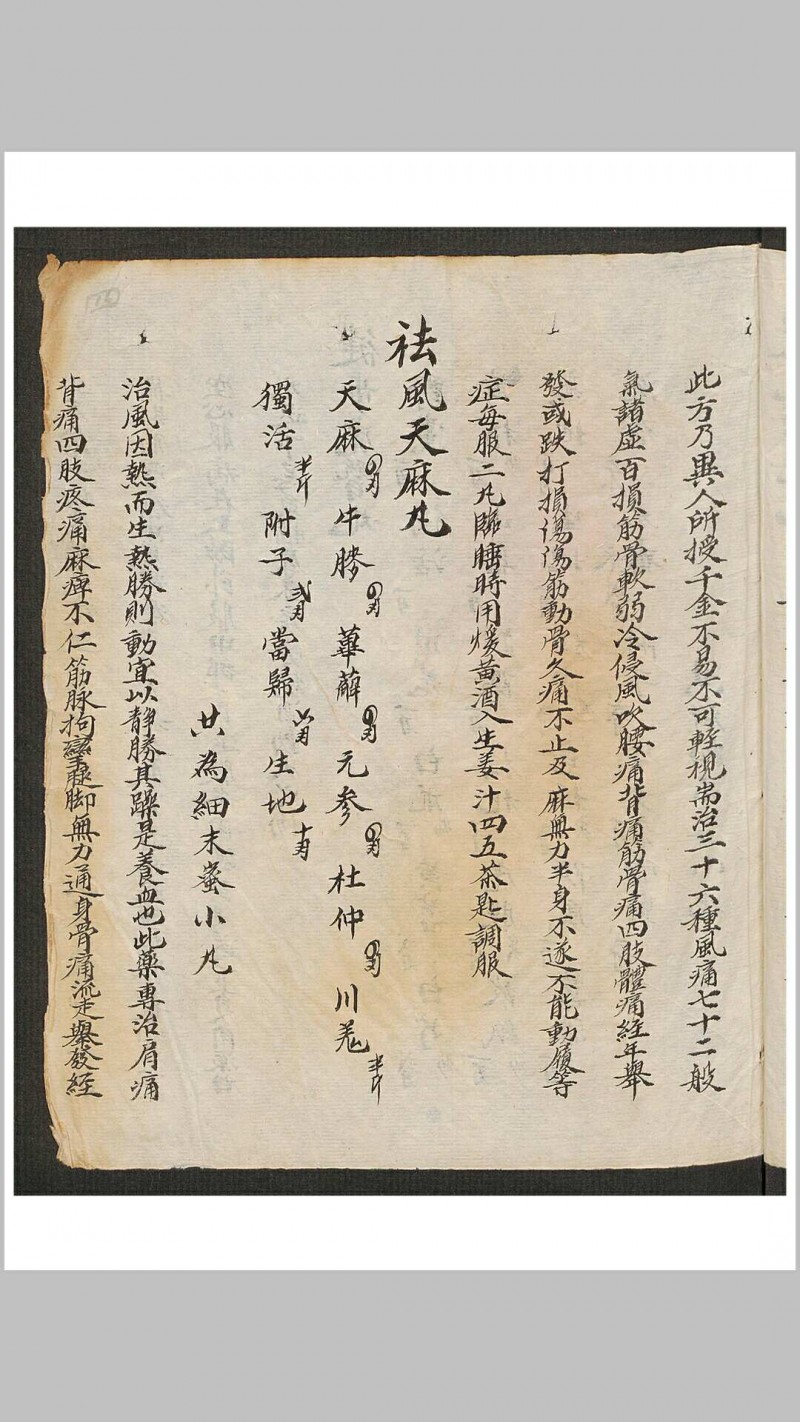 此方乃異人所授千金不易不可輕視耑治三十六種風痛七十二般
氣諸虛百損筋骨軟弱冷侵風吹腰痛背痛筋骨痛四肢體痛經年舉
發或跌打損傷傷筋動骨久痛不止及麻無力半身不遂不能動履等
症每服二丸臨睡時用煖黃酒入生姜汁四五茶匙調服
祛風天麻丸
天麻 牛膝 萆薢 元参 杜仲 川羗 半斤
獨活 半斤 附子 當歸 生地
共為細末蜜小丸
治風因熱而生熱勝則動宜以静勝其躁是養血也此藥專治肩痛
背痛四肢疼痛麻痺不仁筋脉拘攣腿脚無力通身骨痛流走舉發經